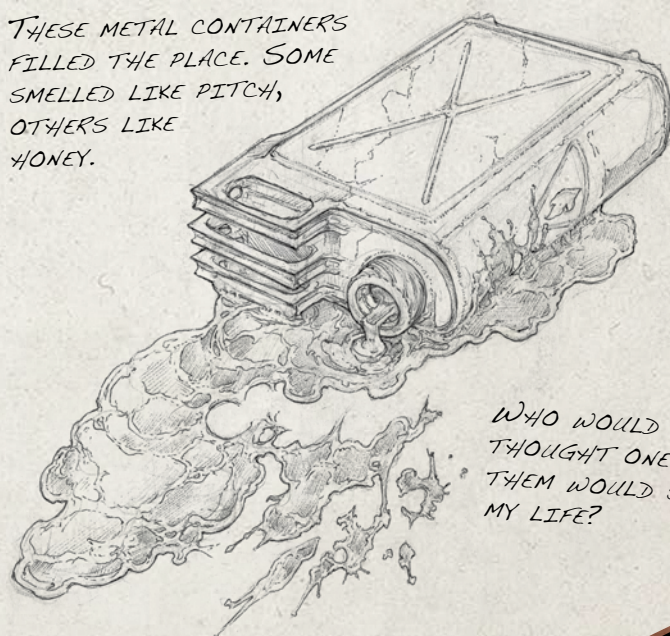 THESE METAL CONTAINERS
FILLED THE PLACE. SOME
SMELLED LIKE PITCH,
OTHERS LIKE
HONEY.
WHO WOULD
THOUGHT ONE
THEM WOULD
MY LIFE?